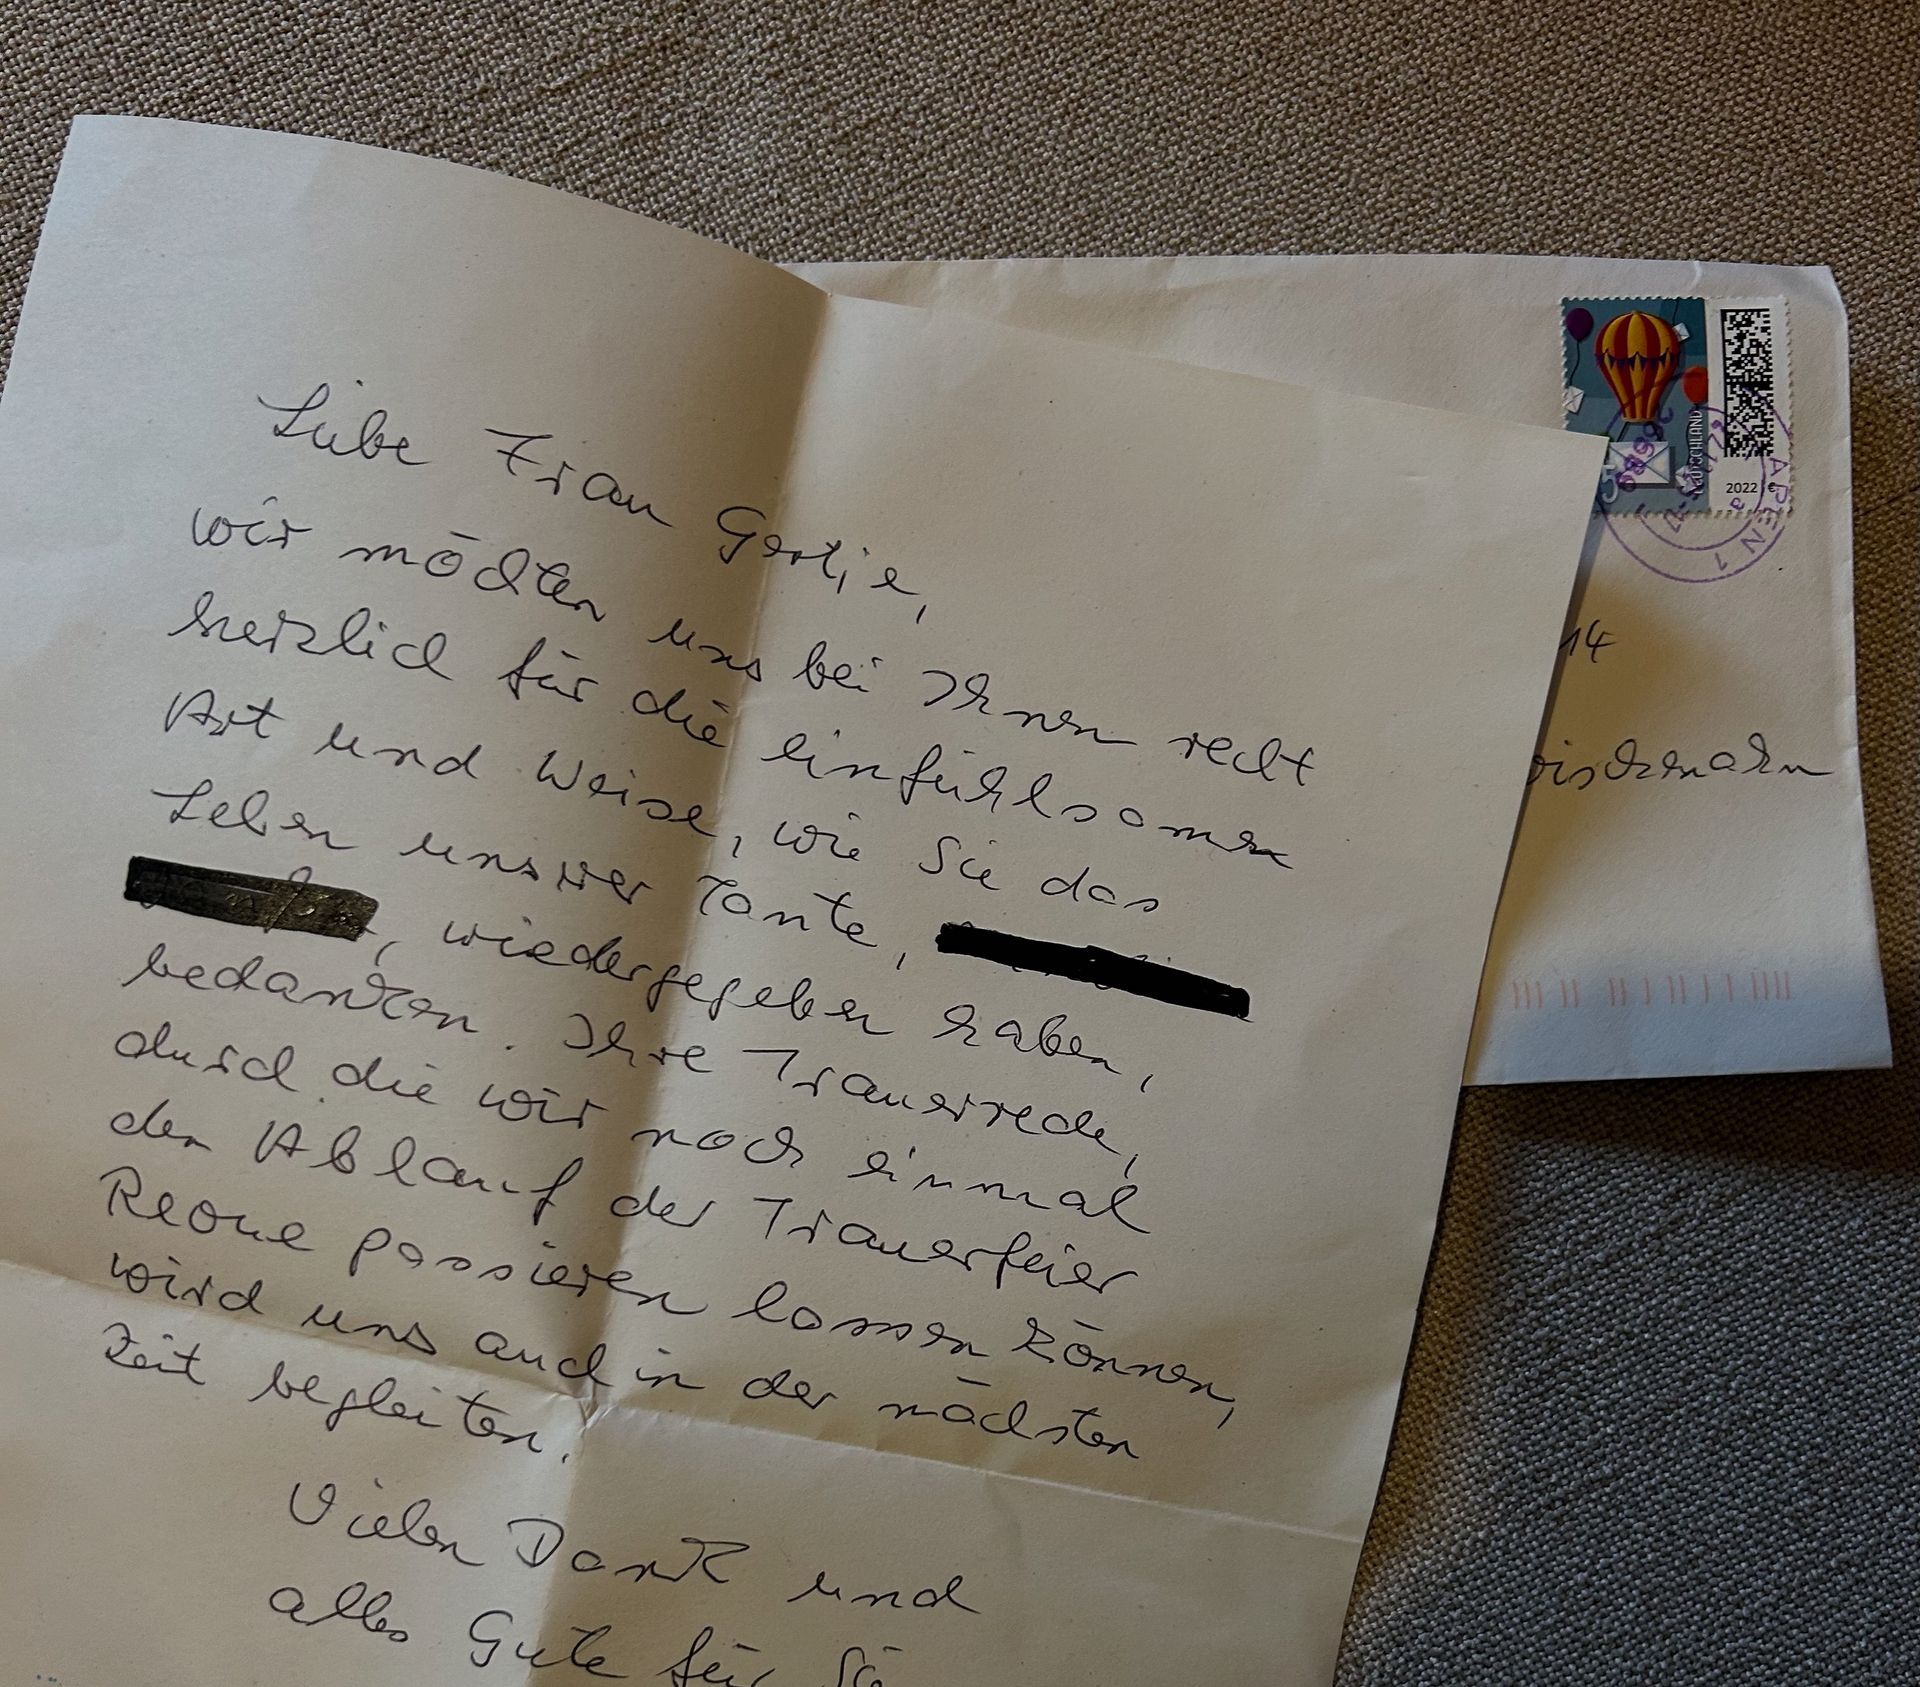 Liebe Frau Gertje,
wir möchten uns bei Ihnen recht
herzlich für die einfühlsamen
Art und Weise, wie Sie das
Leben unserer Tante,
, wiedergegeben haben,
bedanken. Ihre Trauerrede,
durch die wir noch einmal
den Ablauf der Trauerfeier
Revue passieren lassen können,
wird uns auch in der nächsten
Zeit begleiten.
Vielen Dank und
alles Gute für Sie
DEUTSCHLAND
2022 €
APEN 1
26689
14
ischenahn